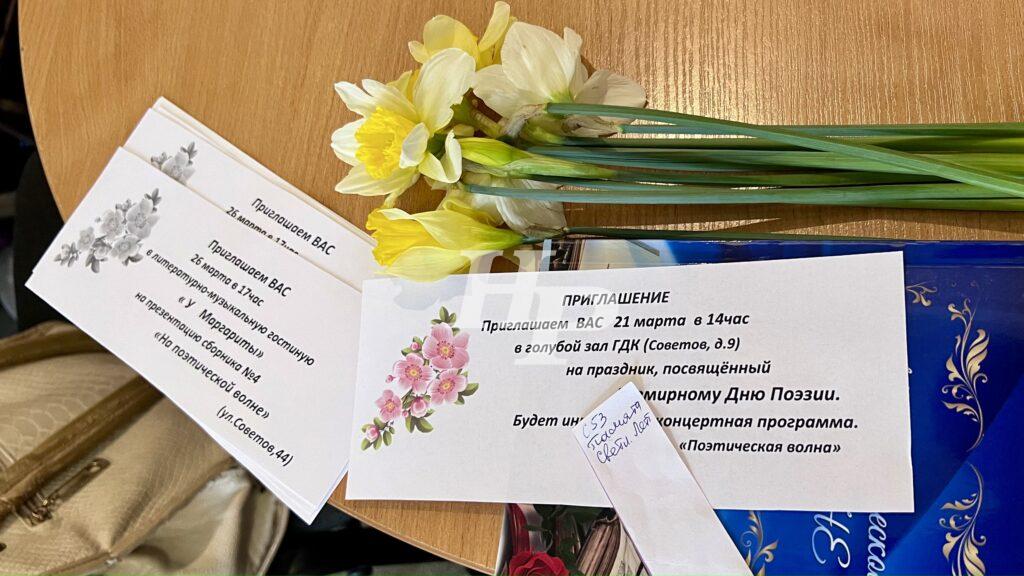 Приглашаем ВАС
26 марта в 17час
Приглашаем ВАС
26 марта в 17час
в литературно-музыкальную гостиную
« У Маргариты»
на презентацию сборника №4
«На поэтической волне»
(ул.Советов,44)
НР
ПРИГЛАШЕНИЕ
Приглашаем ВАС 21 марта в 14час
в голубой зал ГДК (Советов, д.9)
на праздник, посвящённый
мирному Дню Поэзии.
Будет ин концертная программа.
«Поэтическая волна»
с53
Памяти
Светл. Лот